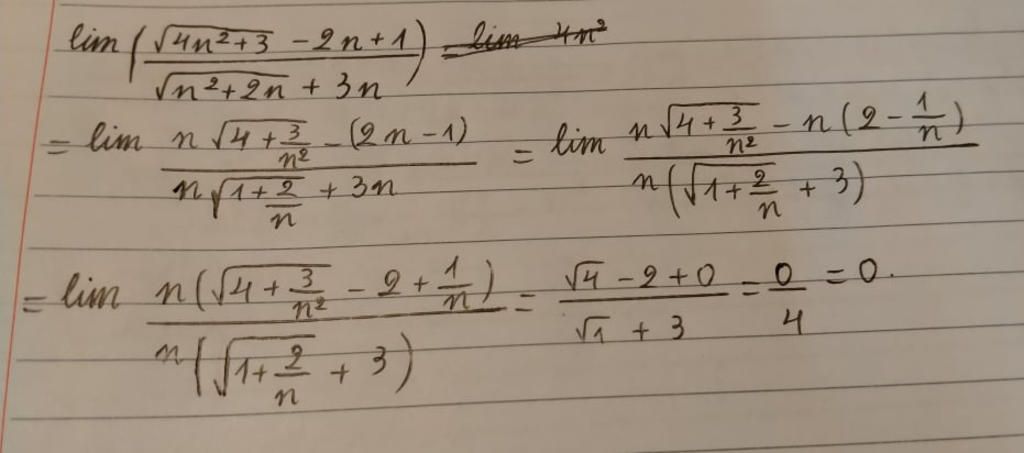 lim ( (√(4n²+3) - 2n + 1) / (√(n²+2n) + 3n) ) = lim 4n²
= lim (n√(4 + 3/n²) - (2n - 1)) / (n√(1 + 2/n) + 3n) = lim (n√(4 + 3/n²) - n(2 - 1/n)) / (n(√(1 + 2/n) + 3))
= lim (n(√(4 + 3/n²) - 2 + 1/n)) / (n(√(1 + 2/n) + 3)) = (√4 - 2 + 0) / (√1 + 3) = 0/4 = 0.